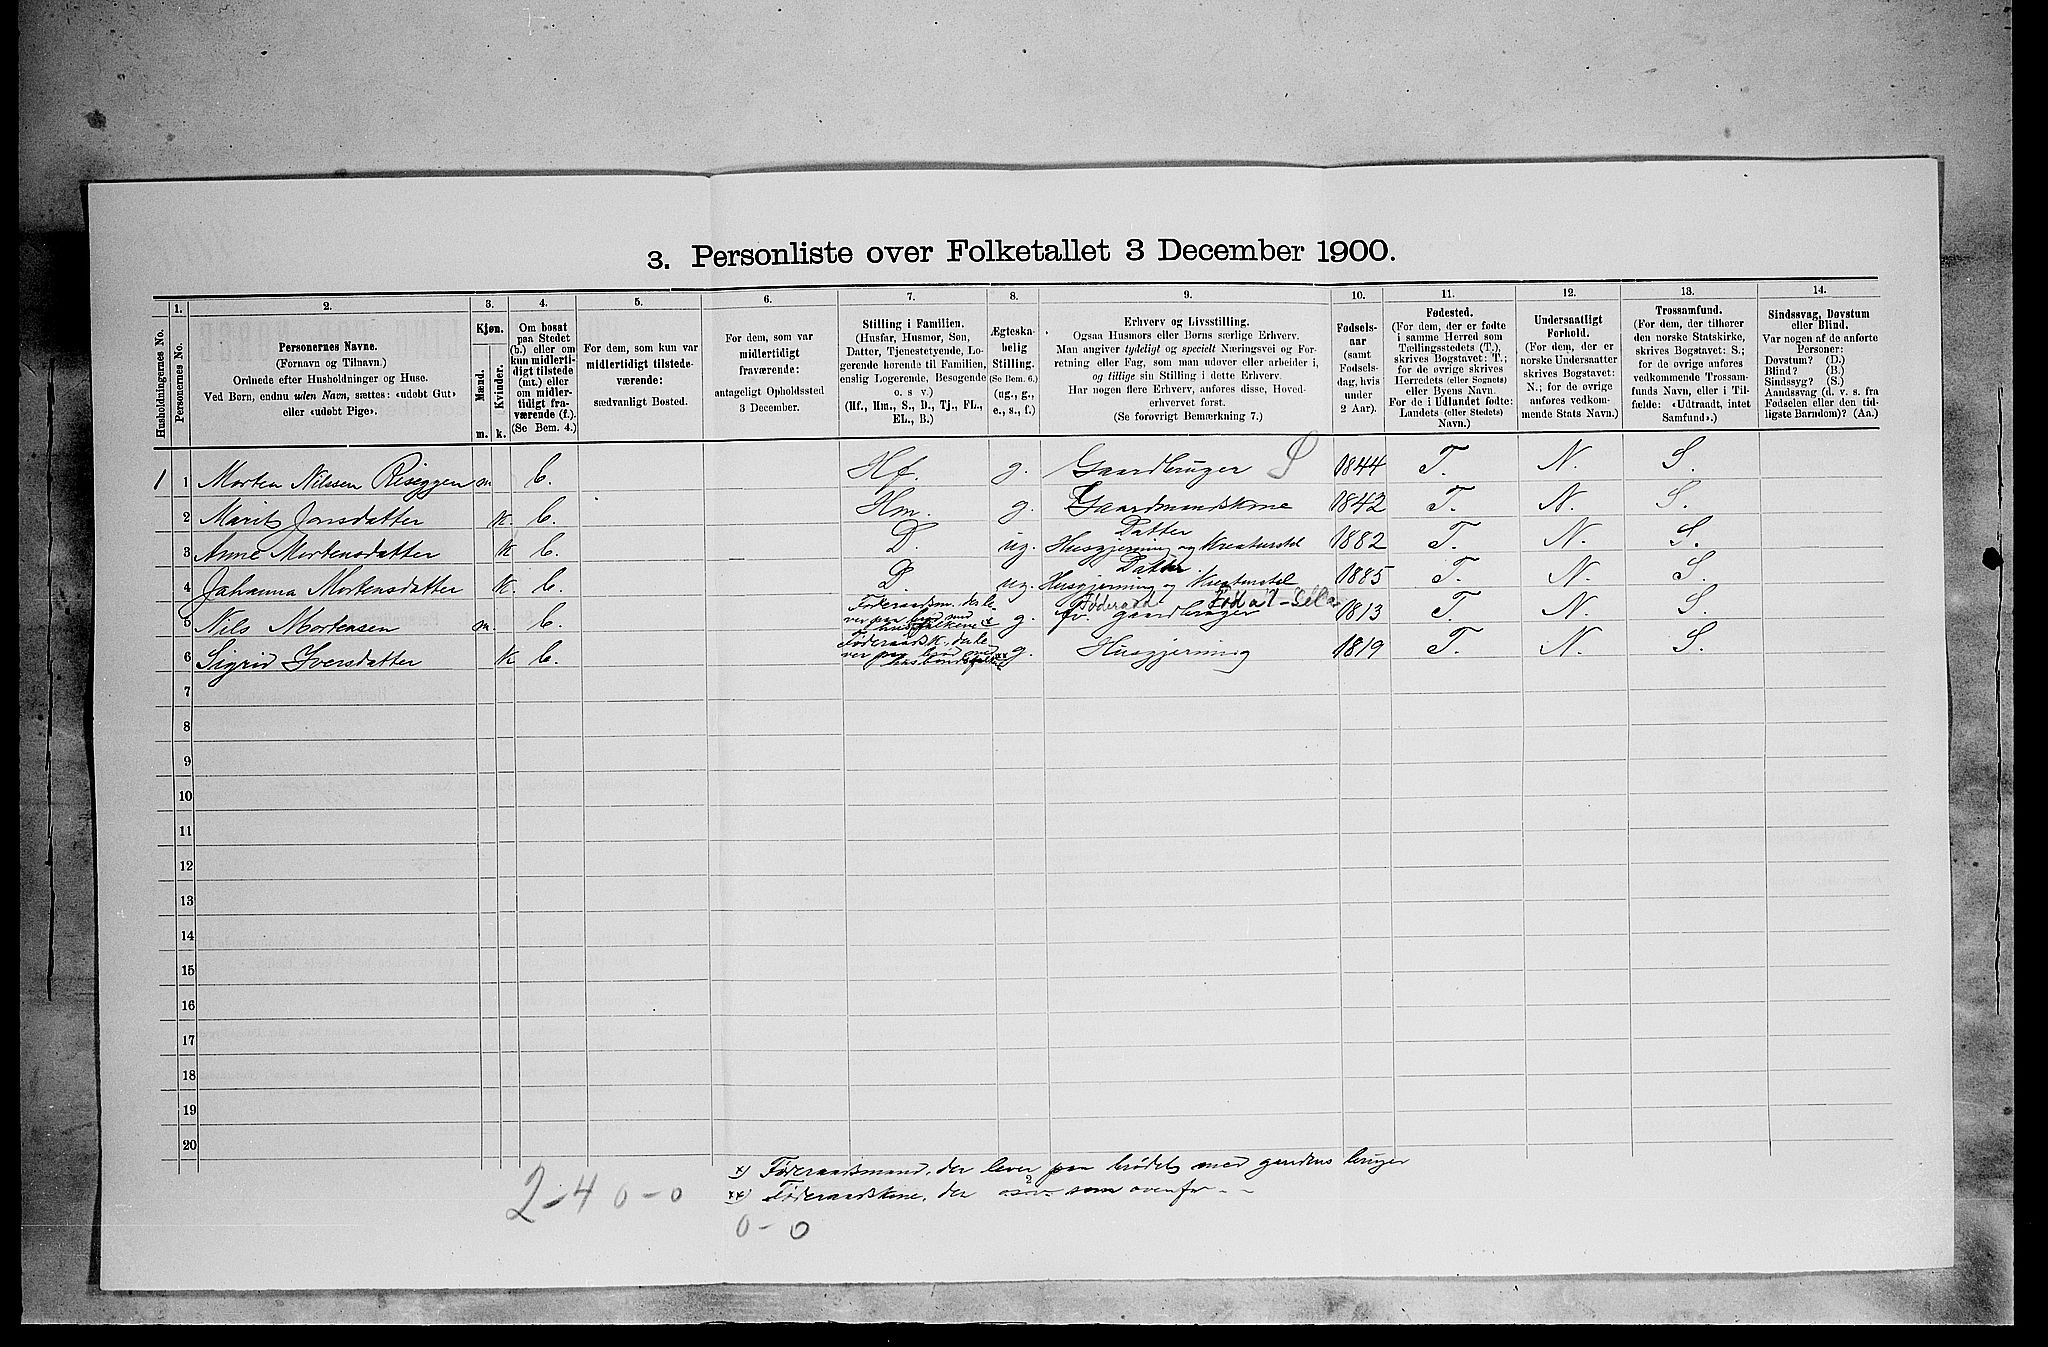 3. Personliste over Folketallet 3 December 1900.
Husholdningernes No.
1.
Personernes No.
2.
Personernes Navne.
(Fornavn og Tilnavn.)
Ordnede efter Husholdninger og Huse.
Ved Børn, endnu uden Navn, sættes: «udøbt Gut»
eller «udøbt Pige».
3.
Kjøn.
Mænd.
Kvinder.
m. k.
4.
Om bosat
paa Stedet
(b.) eller om
kun midlerti-
digt tilstede
(mt.) eller
om midler-
tidigt fra-
værende (f.).
(Se Bem. 4.)
5.
For dem, som kun var
midlertidigt tilstede-
værende:
sædvanligt Bosted.
6.
For dem, som var
midlertidigt
fraværende:
antageligt Opholdssted
3 December.
7.
Stilling i Familien.
(Husfar, Husmor, Søn,
Datter, Tjenestetyende, Lo-
gerende hørende til Familien,
enslig Logerende, Besøgende
o. s v.)
(Hf., Hm., S., D., Tj., FL.,
EL., B.)
8.
Ægteska-
belig
Stilling.
(Se Bem. 6.)
(ug., g.,
e., s., f.)
9.
Erhverv og Livsstilling.
Ogsaa Husmors eller Børns særlige Erhverv.
Man angiver tydeligt og specielt Næringsvei og For-
retning eller Fag, som man udøver eller arbeider i,
og tillige sin Stilling i dette Erhverv.
Har nogen flere Erhverv, anføres disse, Hoved-
erhvervet først.
(Se forøvrigt Bemærkning 7.)
10.
Fødsels-
aar
(samt
Fødsels-
dag, hvis
under
2 Aar).
11.
Fødested.
(For dem, der er fødte
i samme Herred som
Tællingsstedets (T.),
skrives Bogstavet: T.;
for de øvrige skrives
Herredets (eller Sognets)
eller Byens Navn.
For de i Udlandet fødte:
Landets (eller Stedets)
Navn.)
12.
Undersaatligt
Forhold.
(For dem, der er
norske Undersaatter
skrives Bogstavet:
N.; for de øvrige
anføres vedkom-
mende Stats Navn.)
13.
Trossamfund.
(For dem, der tilhører
den norske Statskirke,
skrives Bogstavet: S.;
for de øvrige anføres
vedkommende Trossam-
funds Navn, eller i Til-
fælde: «Udtraadt, intet
Samfund».)
14.
Sindssvag, Døvstum
eller Blind.
Var nogen af de anførte
Personer:
Døvstum? (D.)
Blind? (B.)
Sindssyg? (S.)
Aandssvag (d. v. s. fra
Fødselen eller den tid-
ligste Barndom)? (Aa.)
1 1 Morten Nilssen Riseggen m. b. Hf. g. Gaardbruger S 1844 T. N. S.
2 Marit Jonsdatter k. b. Hm. g. Gaardmandskone 1842 T. N. S.
3 Anne Mortensdatter k b. D. ug. Datter Husgjerning og Kreaturstel 1882 T. N. S.
4 Johanna Mortensdatter k. b. D. ug. Datter Husgjerning og Kreaturstel 1885 T. N. S.
5 Nils Mortensen m. b. Føderaadsm. der le-
ver paa brød med
g. fv. gaardbruger 1813 T. N. S.
6 Sigrid Iversdatter k b. Føderaadsk. der le-
ver paa brød med
g. Husgjerning 1819 T. N. S.
7
8
9
10
11
12
13
14
15
16
17
18
19
20
x) Føderaadsmand, der lever paa brødet med gaardens bruger
xx) Føderaadskone, der som ovenfor - -
2-4 0-0
0-0